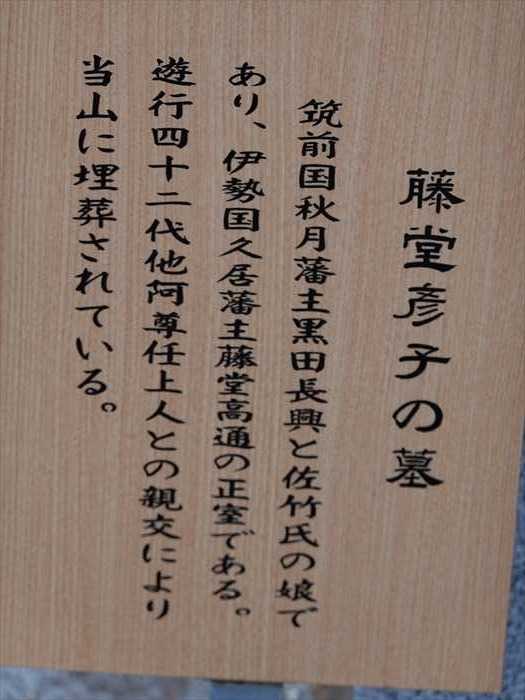 藤堂彦子の墓
筑前国秋月藩主黒田長興と佐竹氏の娘で
あり、伊勢国久居藩主藤堂高通の正室である。
遊行四十二代他阿尊任上人との親交により
当山に埋葬されている。